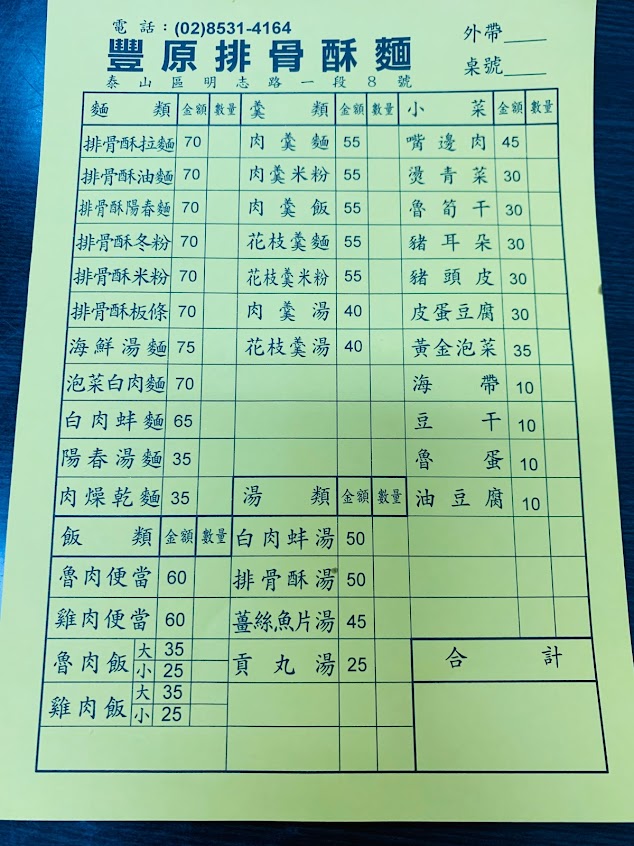 電話：(02)8531-4164
豐原排骨酥麵
泰山區明志路一段8號
外帶____
桌號____
麵類 金額 數量 羹類 金額 數量 小菜 金額 數量
排骨酥拉麵 70 肉羹麵 55 嘴邊肉 45
排骨酥油麵 70 肉羹米粉 55 燙青菜 30
排骨酥陽春麵 70 肉羹飯 55 魯筍干 30
排骨酥冬粉 70 花枝羹麵 55 豬耳朵 30
排骨酥米粉 70 花枝羹米粉 55 豬頭皮 30
排骨酥板條 70 肉羹湯 40 皮蛋豆腐 30
海鮮湯麵 75 花枝羹湯 40 黃金泡菜 35
泡菜白肉麵 70 海帶 10
白肉蚌麵 65 豆干 10
陽春湯麵 35 魯蛋 10
肉燥乾麵 35 湯類 金額 數量 油豆腐 10
飯類 金額 數量 白肉蚌湯 50
魯肉便當 60 排骨酥湯 50
雞肉便當 60 薑絲魚片湯 45
魯肉飯 大 35 小 25 貢丸湯 25 合計
雞肉飯 大 35 小 25